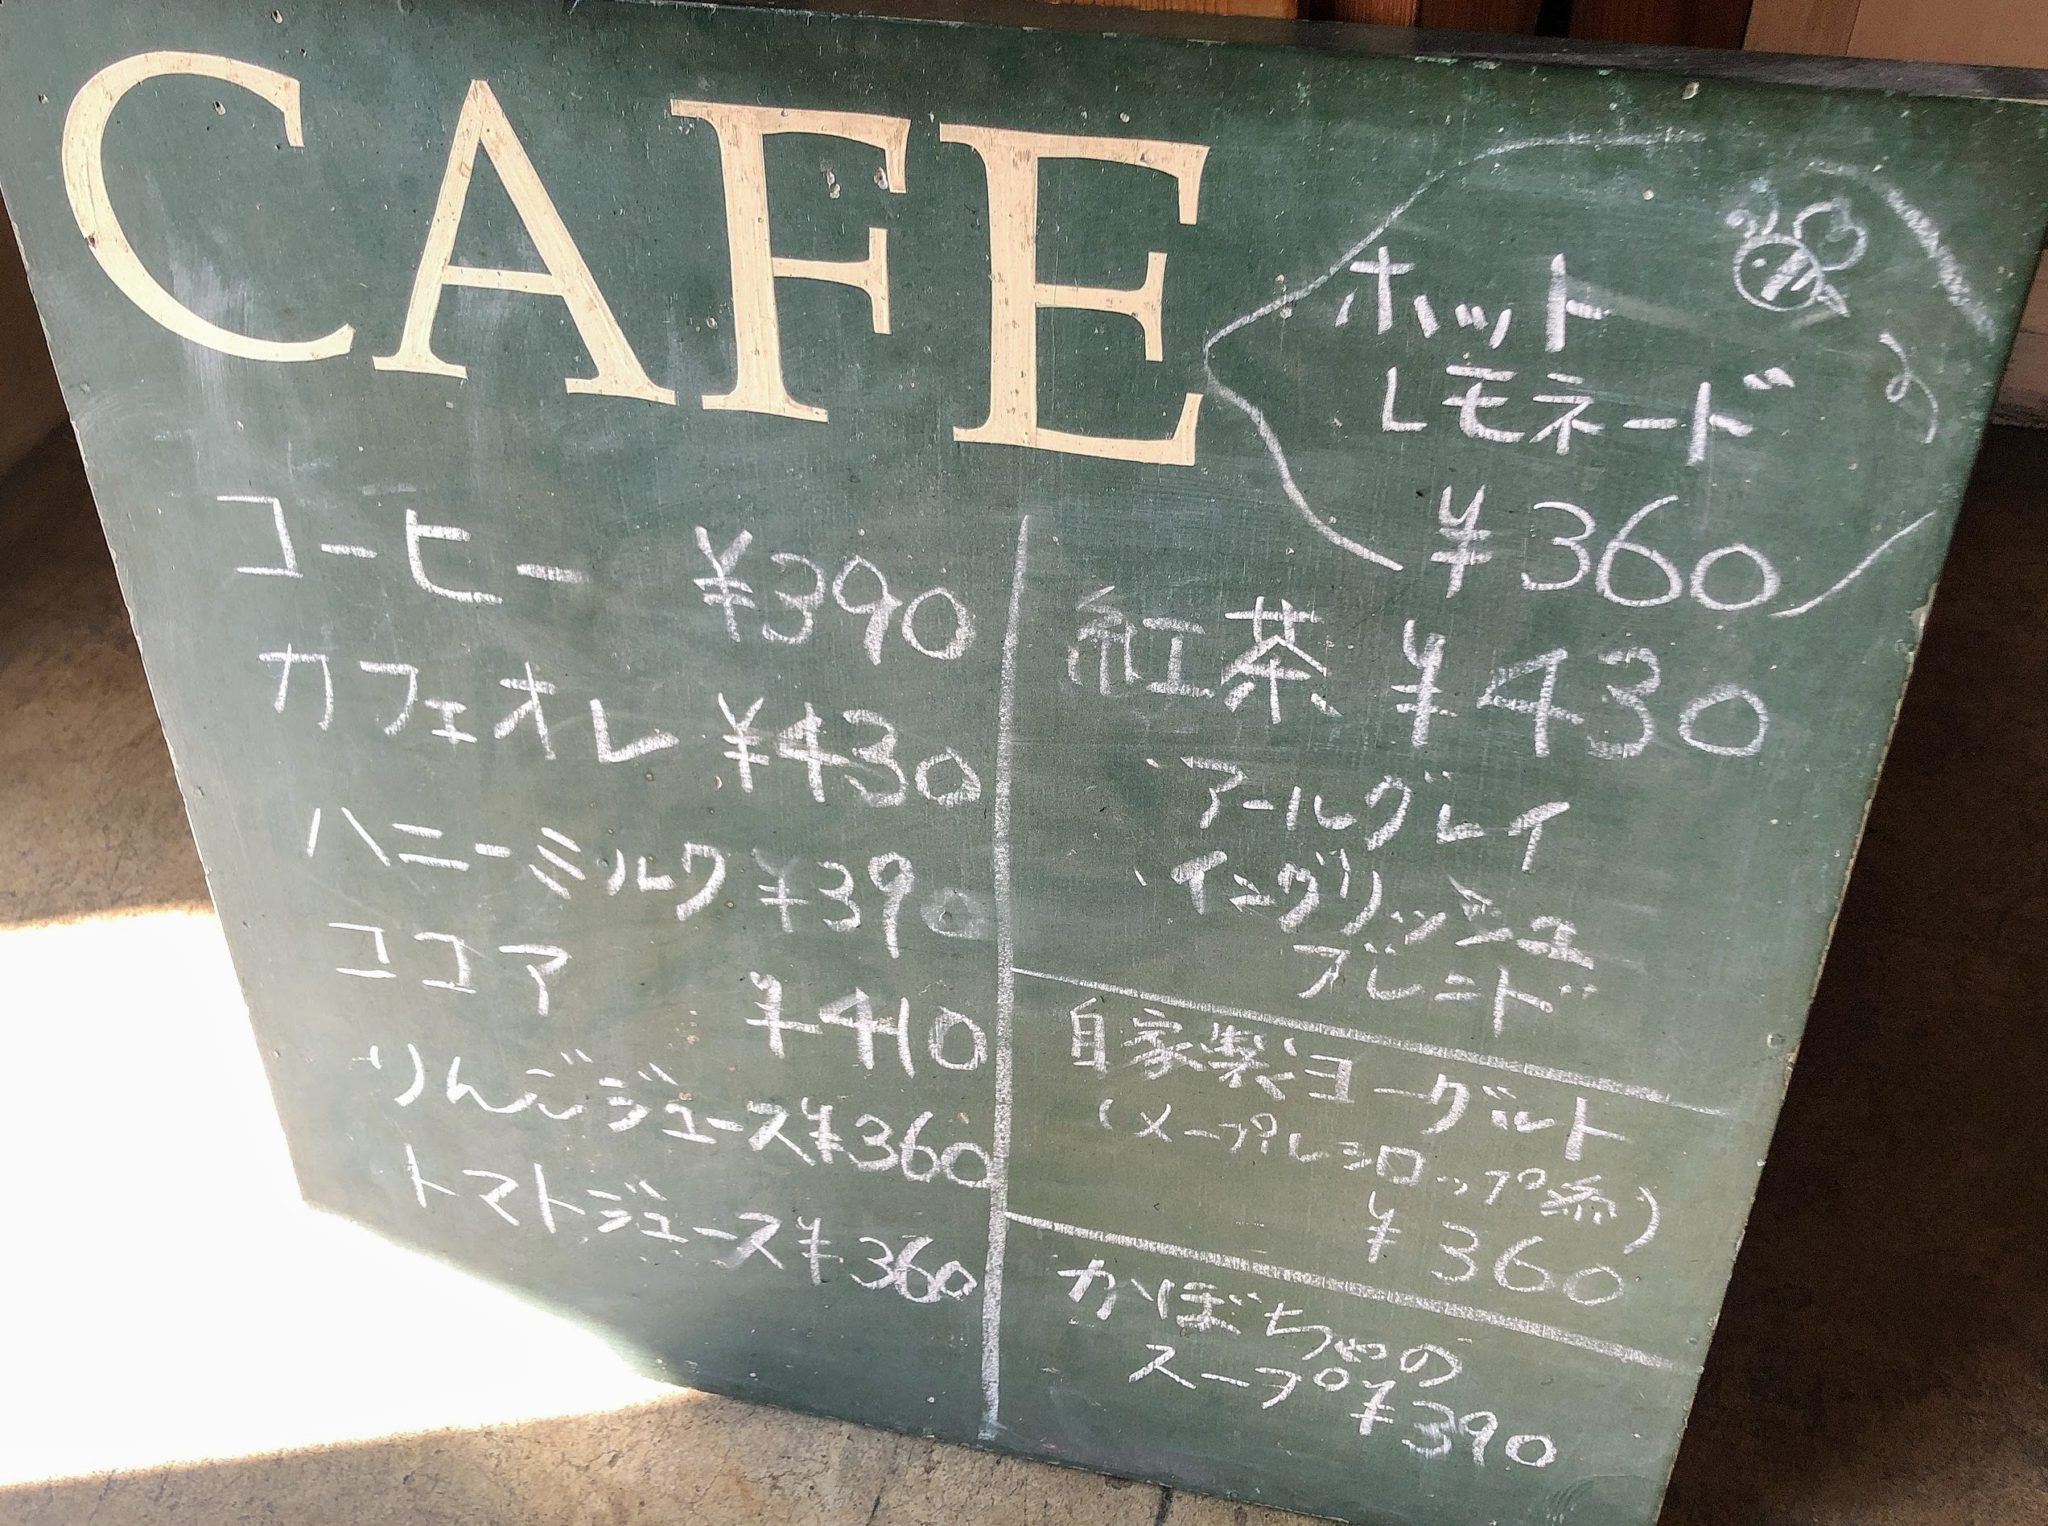 CAFE
ホット
レモネード
¥360
コーヒー ¥390
カフェオレ ¥430
ハニーミルク ¥390
ココア ¥410
りんごジュース ¥360
トマトジュース ¥360
紅茶 ¥430
・アールグレイ
・イングリッシュ
ブレンド
自家製ヨーグルト
(メープルシロップ添)
¥360
かぼちゃの
スープ ¥390